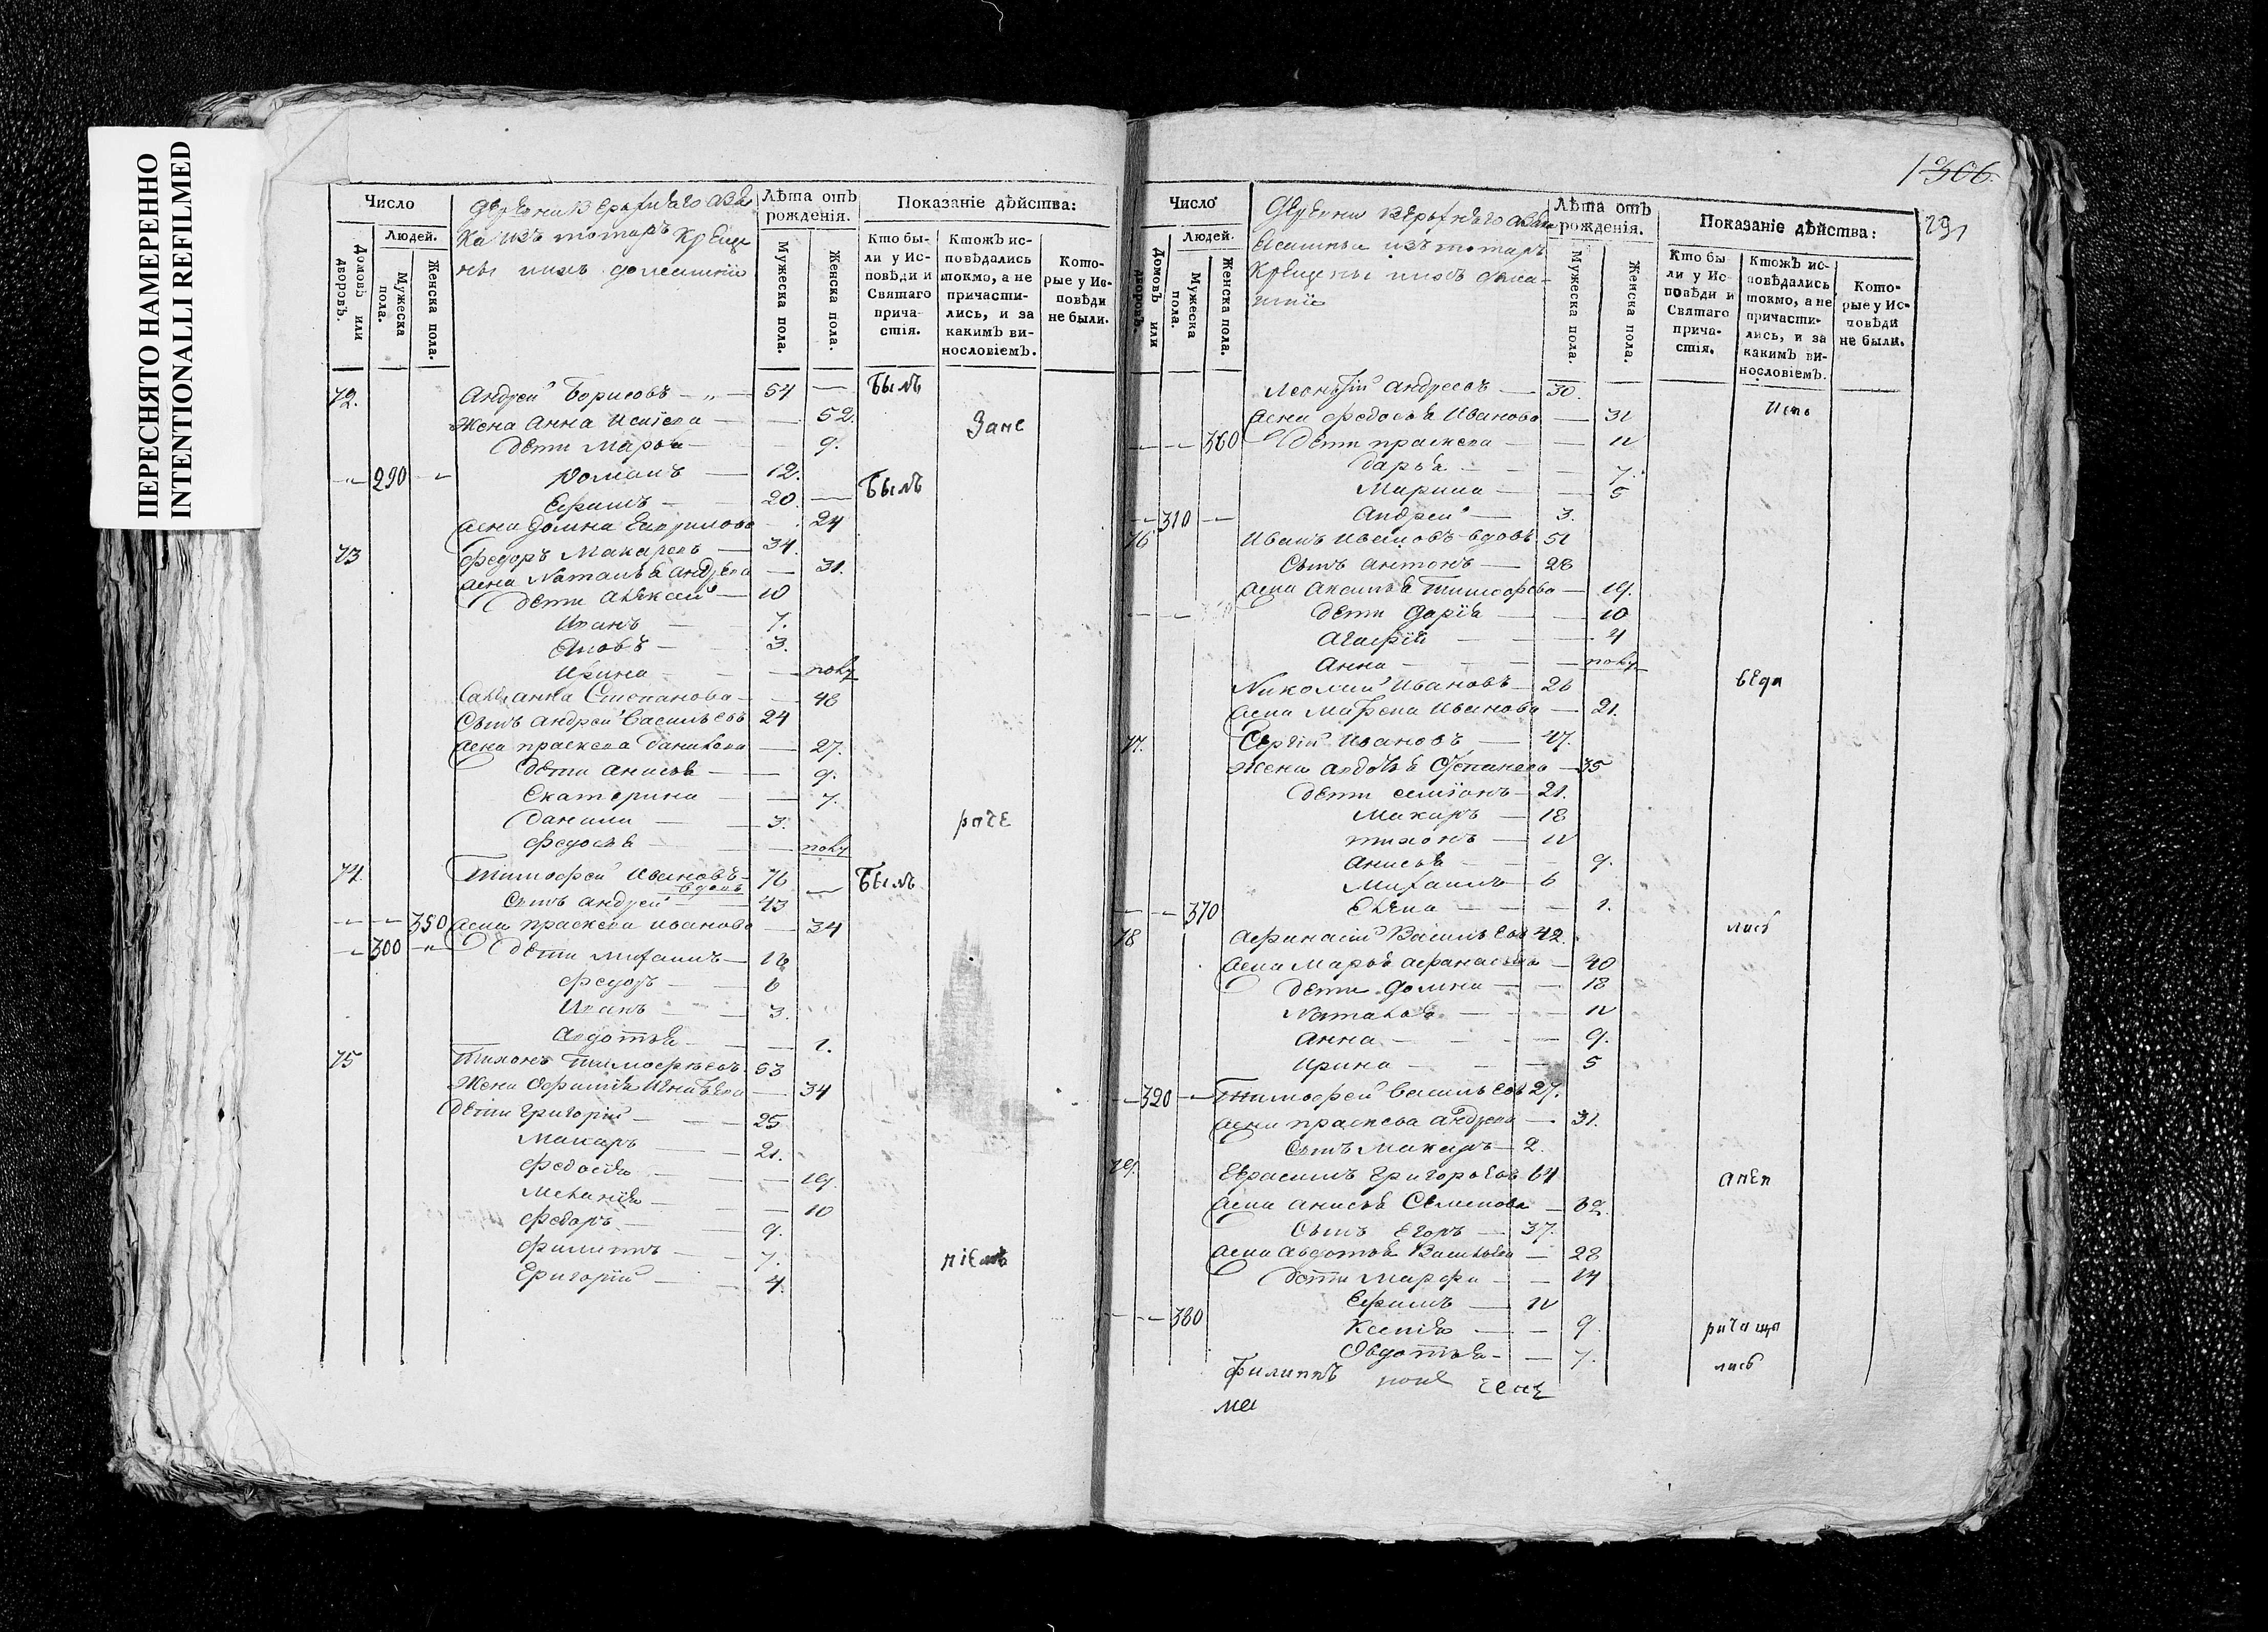 ПЕРЕСНЯТО НАМЕРЕННО
INTENTIONALLI REFILMED
Число
Людей.
Домовъ или дворовъ.
Мужеска пола.
Женска пола.
Лѣта отъ рожденія.
Мужеска пола.
Женска пола.
Показаніе дѣйства:
Кто бы-
ли у Ис-
повѣди и
Святаго
прича-
стія.
Ктожъ ис-
повѣдались
токмо, а не
причасти-
лись, и за
какимъ ви-
нословіемъ.
Кото-
рые у Ис-
повѣди
не были.
72. Андрей Борисовъ 54 — Былъ
Жена Анна 52. Зане
Дети Марья 9.
290 Романъ 12. Былъ
Ефимъ 20
жена Домна Гаврилова 24
73 Федоръ Макаровъ 34
жена Наталья Андреева 31.
Дети Алексей 10
Иванъ 7.
Яковъ 3.
Ирина полу
Анна Степанова 48
Сынъ Андрей Васильевъ 24
жена праскева Данилова 27.
Дети анисья 9.
Екатерина 7.
Данила 3.
Федосья полу
раче
74. Тимофей Ивановъ 76 — Былъ
вдовъ
Сынъ Андрей 43
350 жена праскева Иванова 34
300 Дети Михаилъ 16
Федоръ 6
Иванъ 3.
Авдотья 1.
75 Тихонъ Тимофеевъ 53
Жена 34
Дети григорий 25
Макаръ 21.
Федосия 19.
Мелания 10
Федоръ 9.
Филиппъ 7.
Григорий 4.
1306.
291
Число
Людей.
Домовъ или дворовъ.
Мужеска пола.
Женска пола.
Лѣта отъ рожденія.
Мужеска пола.
Женска пола.
Показаніе дѣйства:
Кто бы
ли у Ис-
повѣди и
Святаго
прича-
стія.
Ктожъ ис-
повѣдались
токмо, а не
причасти-
лись, и за
какимъ ви-
нословіемъ.
Кото-
рые у Ис-
повѣди
не были.
Леонтий андреевъ 30.
Испо
жена федосья Иванова 31
360 Дети праскева 12
дарья 7.
Марина 5
310 Андрей 3.
76 Иванъ Ивановъ вдовъ 51
Сынъ антонъ 28
жена аксинья Тимофеева 19.
Дети Дария 10
Агафия 4
Анна полу
веда
Николай Ивановъ 26
жена Марфа Иванова 21.
77. Сергий Ивановъ 47.
Жена авдотья Степанова 35
Дети семионъ 21.
Макаръ 18
тихонъ 12
анисья 9.
Михаилъ 6
370 Елена 1.
лись
78 Афанасий Васильевъ 42.
жена Марья афанасьева 40
Дети Домна 18
Наталья 12
Анна 9.
Ирина 5
320 Тимофей Васильевъ 27.
жена праскева Андреева 31.
Сынъ Макаръ 2.
79. Герасимъ Григорьевъ 64
анеп
жена анисья Семенова 62.
Сынъ Егоръ 37.
жена авдотья Васильева 28
Дети Марфа 14
Ефимъ 12
380 Ксения 9.
ричаща
Овдотья 7.
лись
Филиппъ